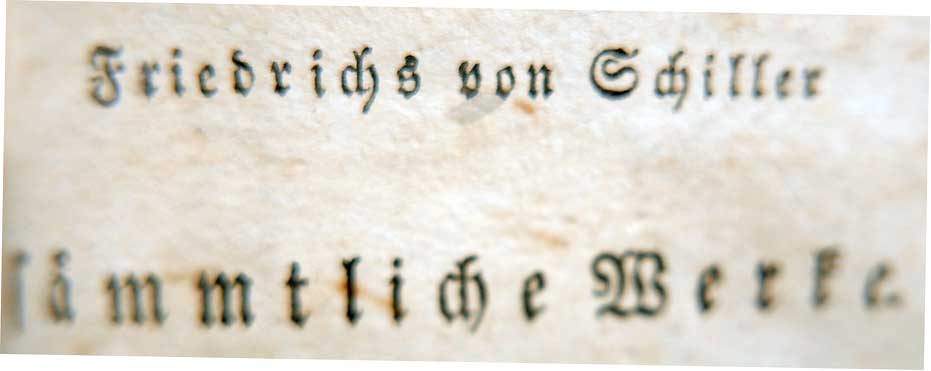 Friedrichs von Schiller
ſämmtliche Werke.